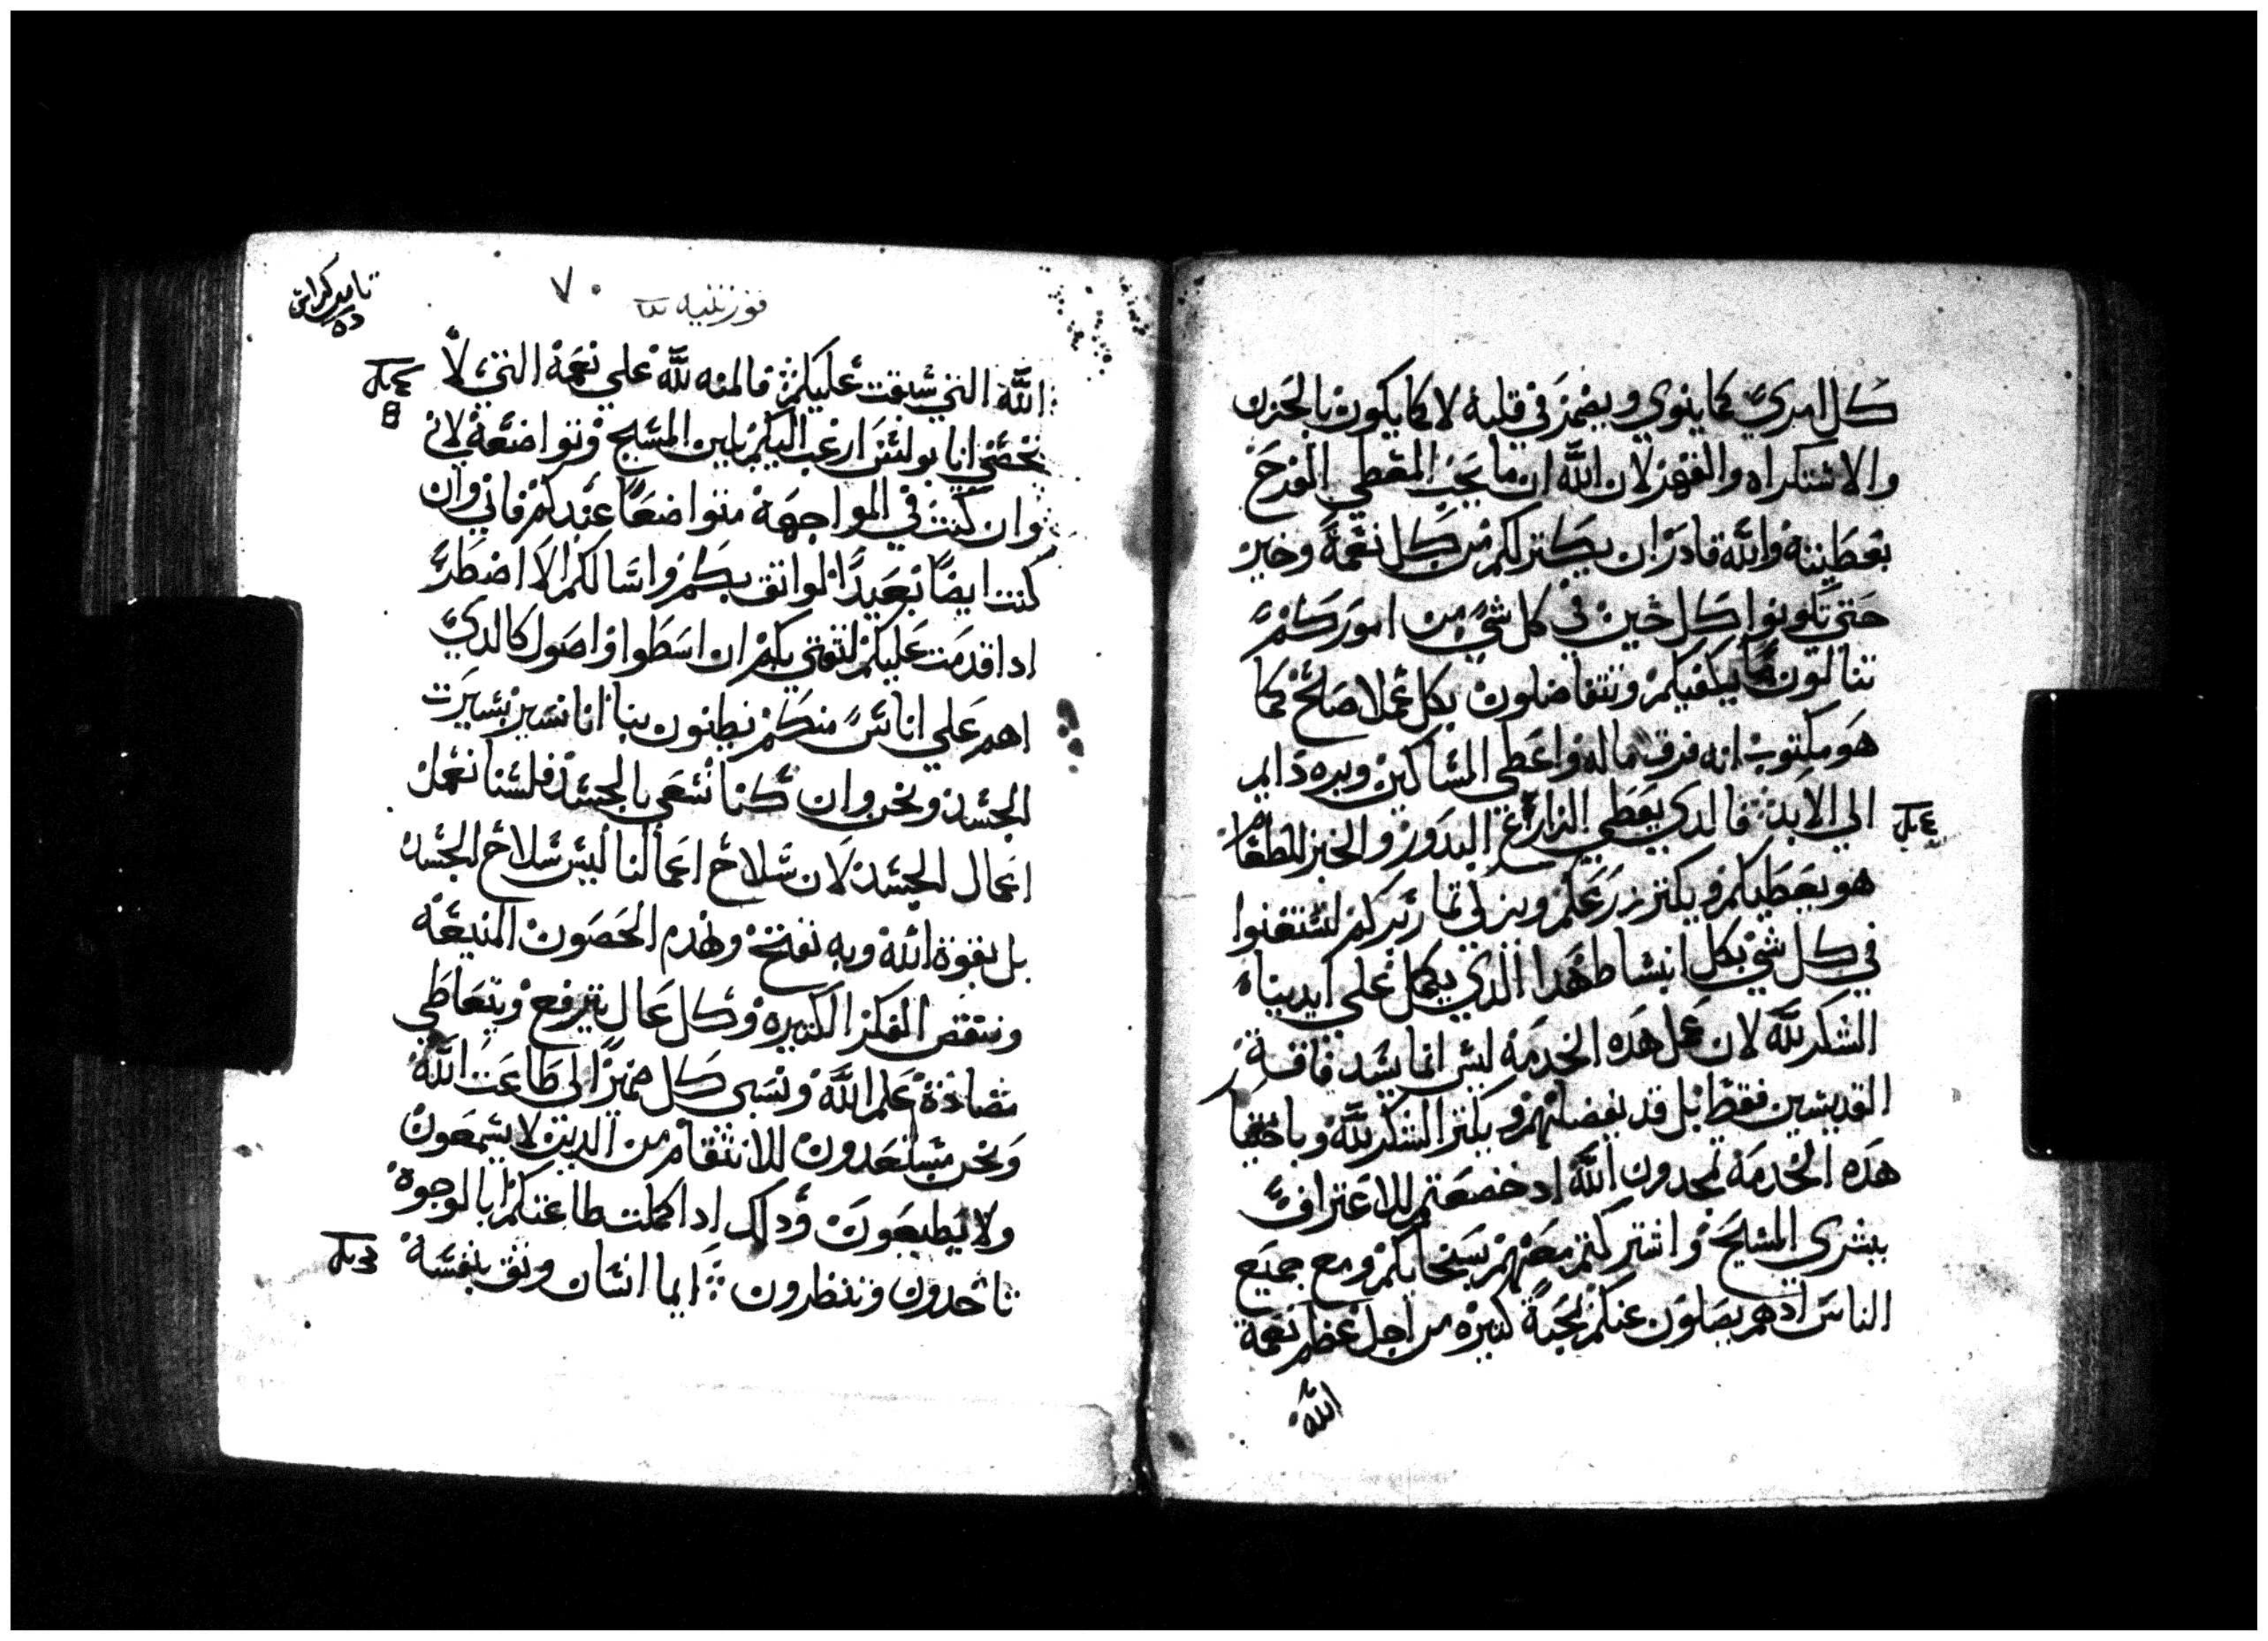 كل امرئ كما ينوي ويضمر في قلبه لا كما يكون بالحزن
والاستكراه والقهر لان الله ان ما يحب المعطي الفرح
بعطيته والله قادر ان يكتر لكم من كل نعمة وخير
حتي تكونوا كل حين في كل شي من اموركم
تنالون ما يكفيكم وتتفاضلون بكل عملا صالح كما
هو مكتوب انه فرق ماله واعطي المساكين وبره دايم
الي الابد فالدي يعطي الزارع البدور والخبز للطعام
هو يعطيكم ويكتر زرعكم ويزكي تمار بركم لتستغنوا
في كل شي بكل انبساط هدا الدي يكمل علي ايدينا
الشكر لله لان عمل هده الخدمه ليس انما يسد فاقة
القديسين فقط بل قد يفضلهم ويكتر الشكر لله
هده الخدمة تمجدون الله اد خضعتم للاعتراف
ببشري المسيح واشتركتم معهم بسخايكم ومع جميع
الناس ادهم يصلون عنكم بمحبة كتيره من اجل عظم نعمة
الله
٧٠
الله التي سبقت عليكم فالمنه لله علي نعمة التي لا
تحصي انا بولس ارغب اليكم بلين المسيح وتواضعه لاني
وان كنت في المواجهة متواضعا عندكم فاني وان
كنت ايضا بعيدا لواتق بكم واسالكم الا اضطر
ادا قدمت عليكم لتقتي بكم ان اسطوا واصول كالدي
اهم علي اناس منكم يظنون بنا انا نسير بسيرت
الجسد ونحن وان كنا نسعي بالجسد فلسنا نعمل
اعمال الجسد لان سلاح اعمالنا ليس سلاح الجسد
بل بقوة الله وبه نفتح ونهدم الحصون المنيعة
وننقض الفكر الكتيره وكل عال يترفع ويتعاطي
مضاددة علم الله ونسبي كل ضميرا الي طاعت الله
ونحن مستعدون للانتقام من الدين لا يسمعون
ولا يطيعون ودلك ادا كملت طاعتكم ابالوجوه
تاخدون وتنظرون ايما انسان وتق بنفسه